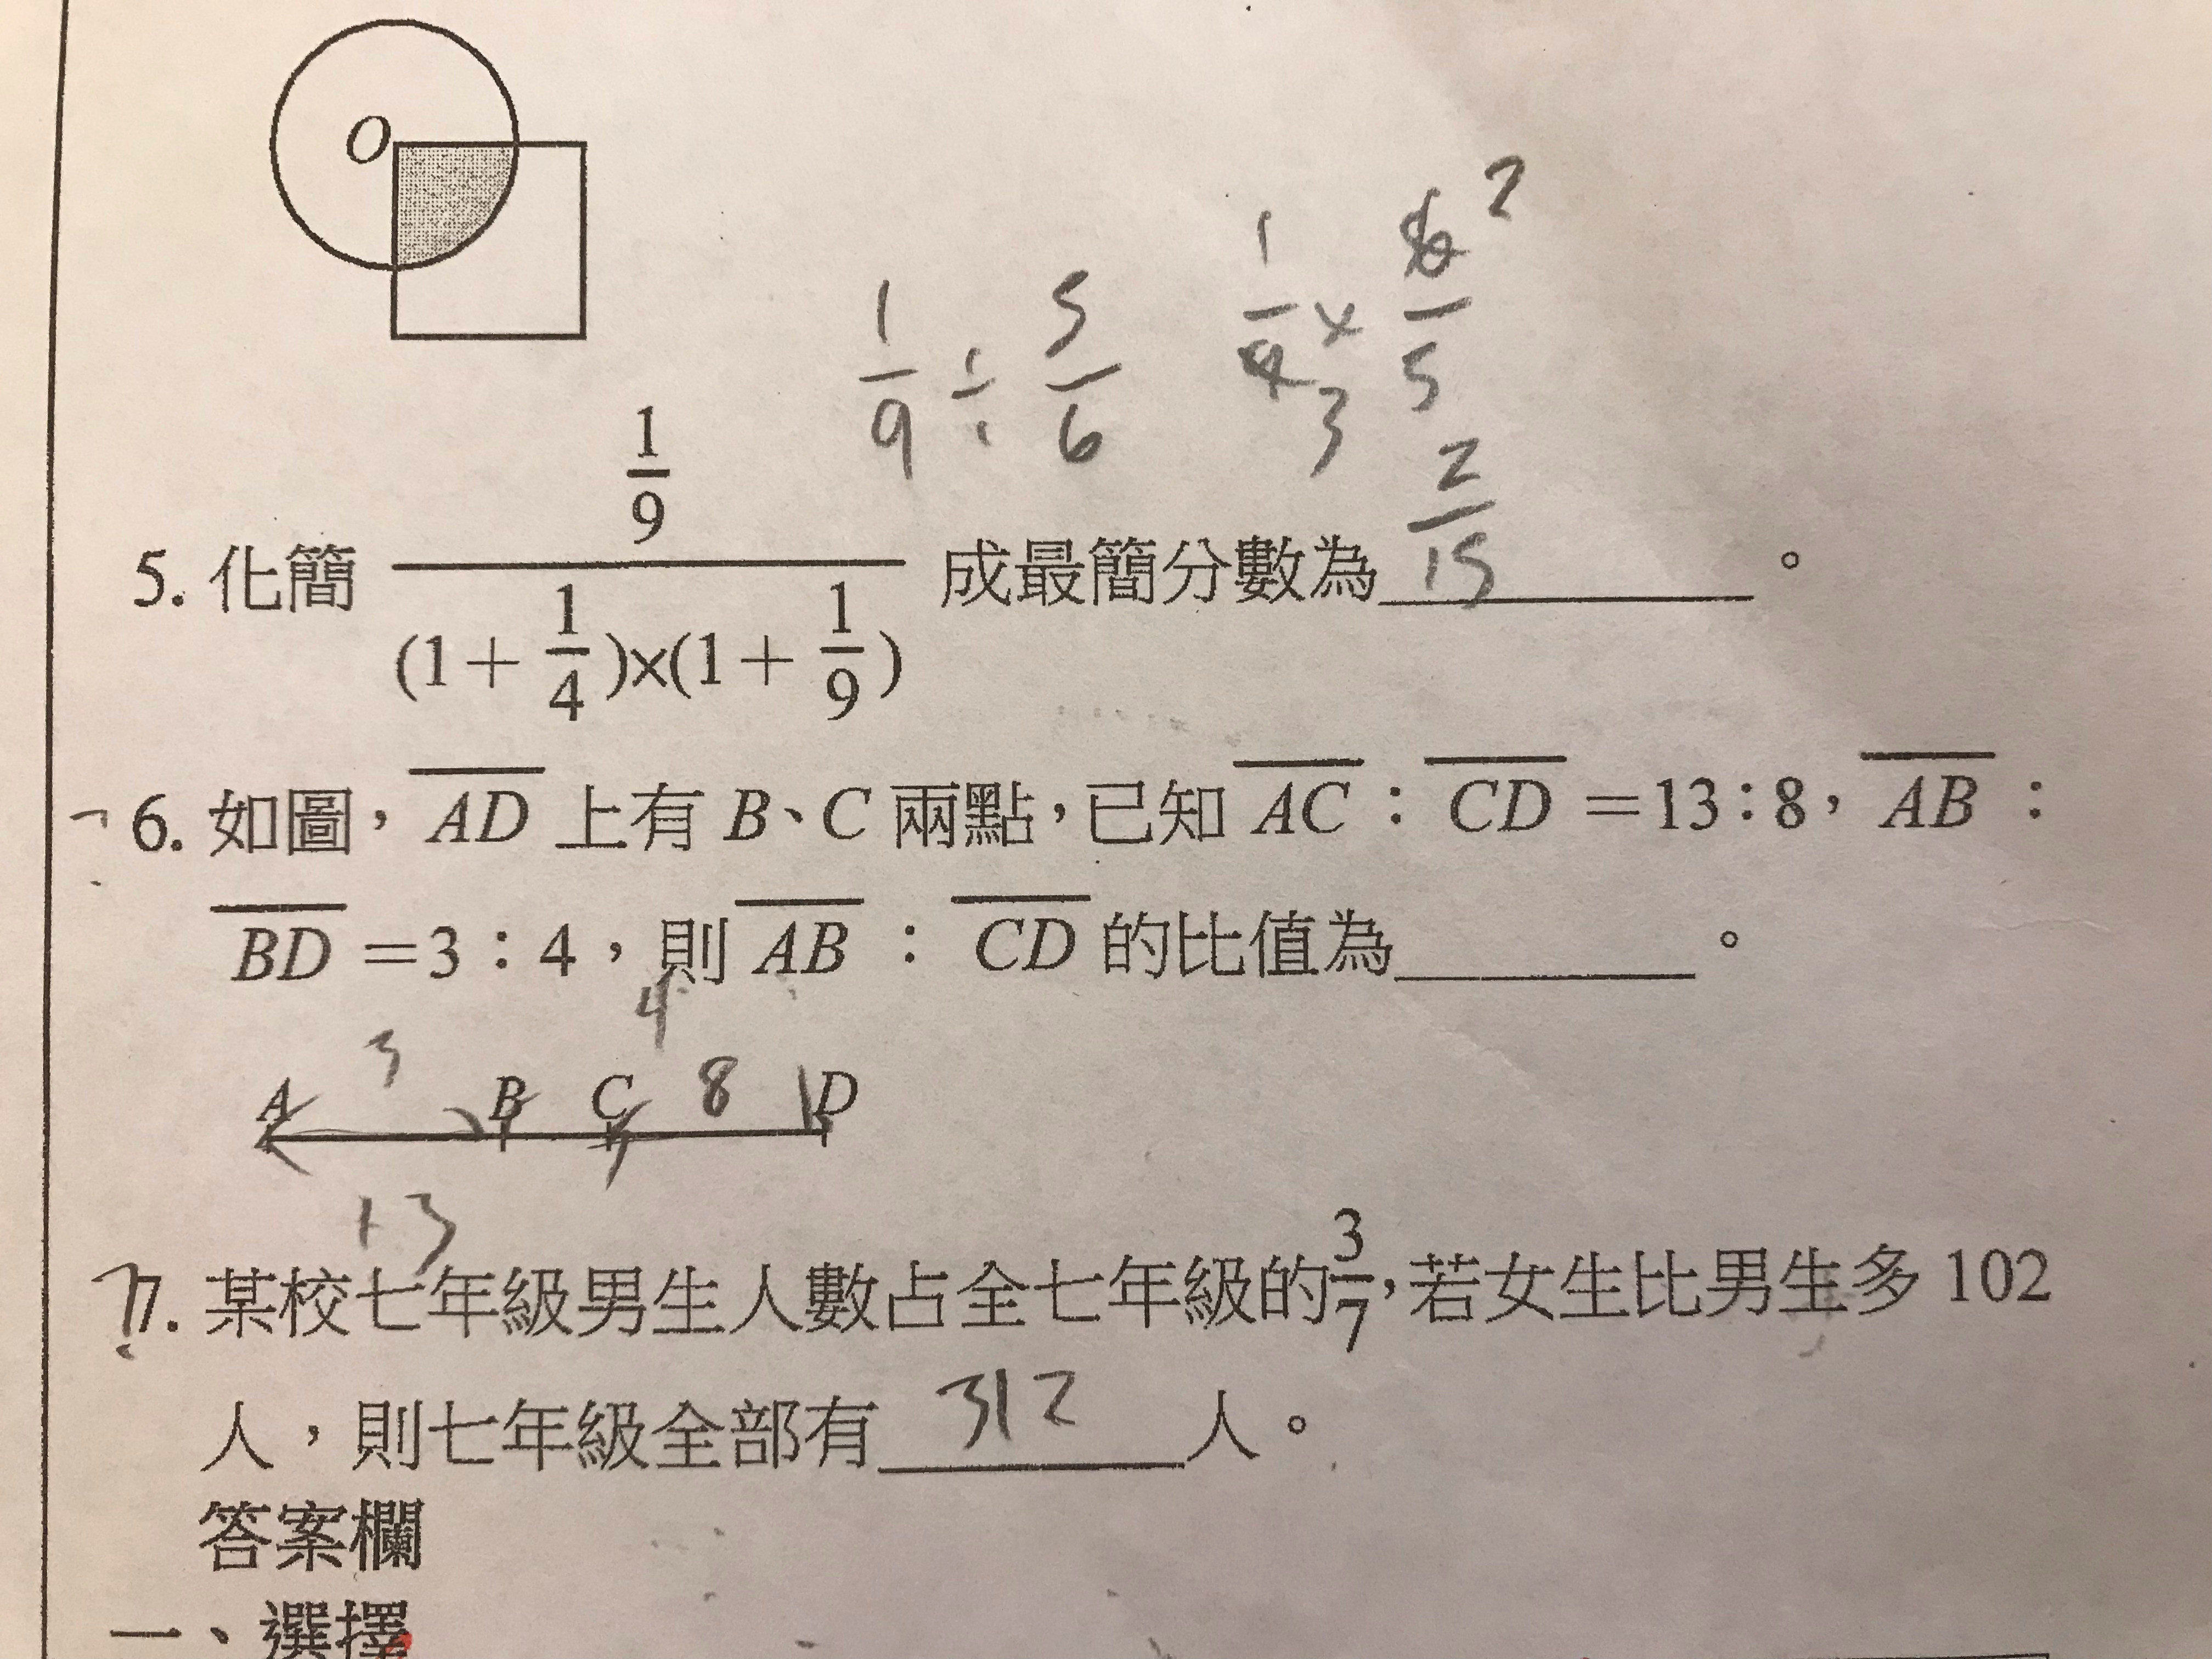 O
1/9 ÷ 5/6
1/9 × 6/5
2
3
2/15
5. 化簡 (1/9)/((1+1/4)x(1+1/9)) 成最簡分數為______。
6. 如圖，AD 上有 B、C 兩點，已知 AC：CD =13：8，AB：
BD =3：4，則 AB：CD 的比值為______。
3 4
A B C 8 D
13
7. 某校七年級男生人數占全七年級的3/7，若女生比男生多 102
人，則七年級全部有 312 人。
答案欄
一、選擇